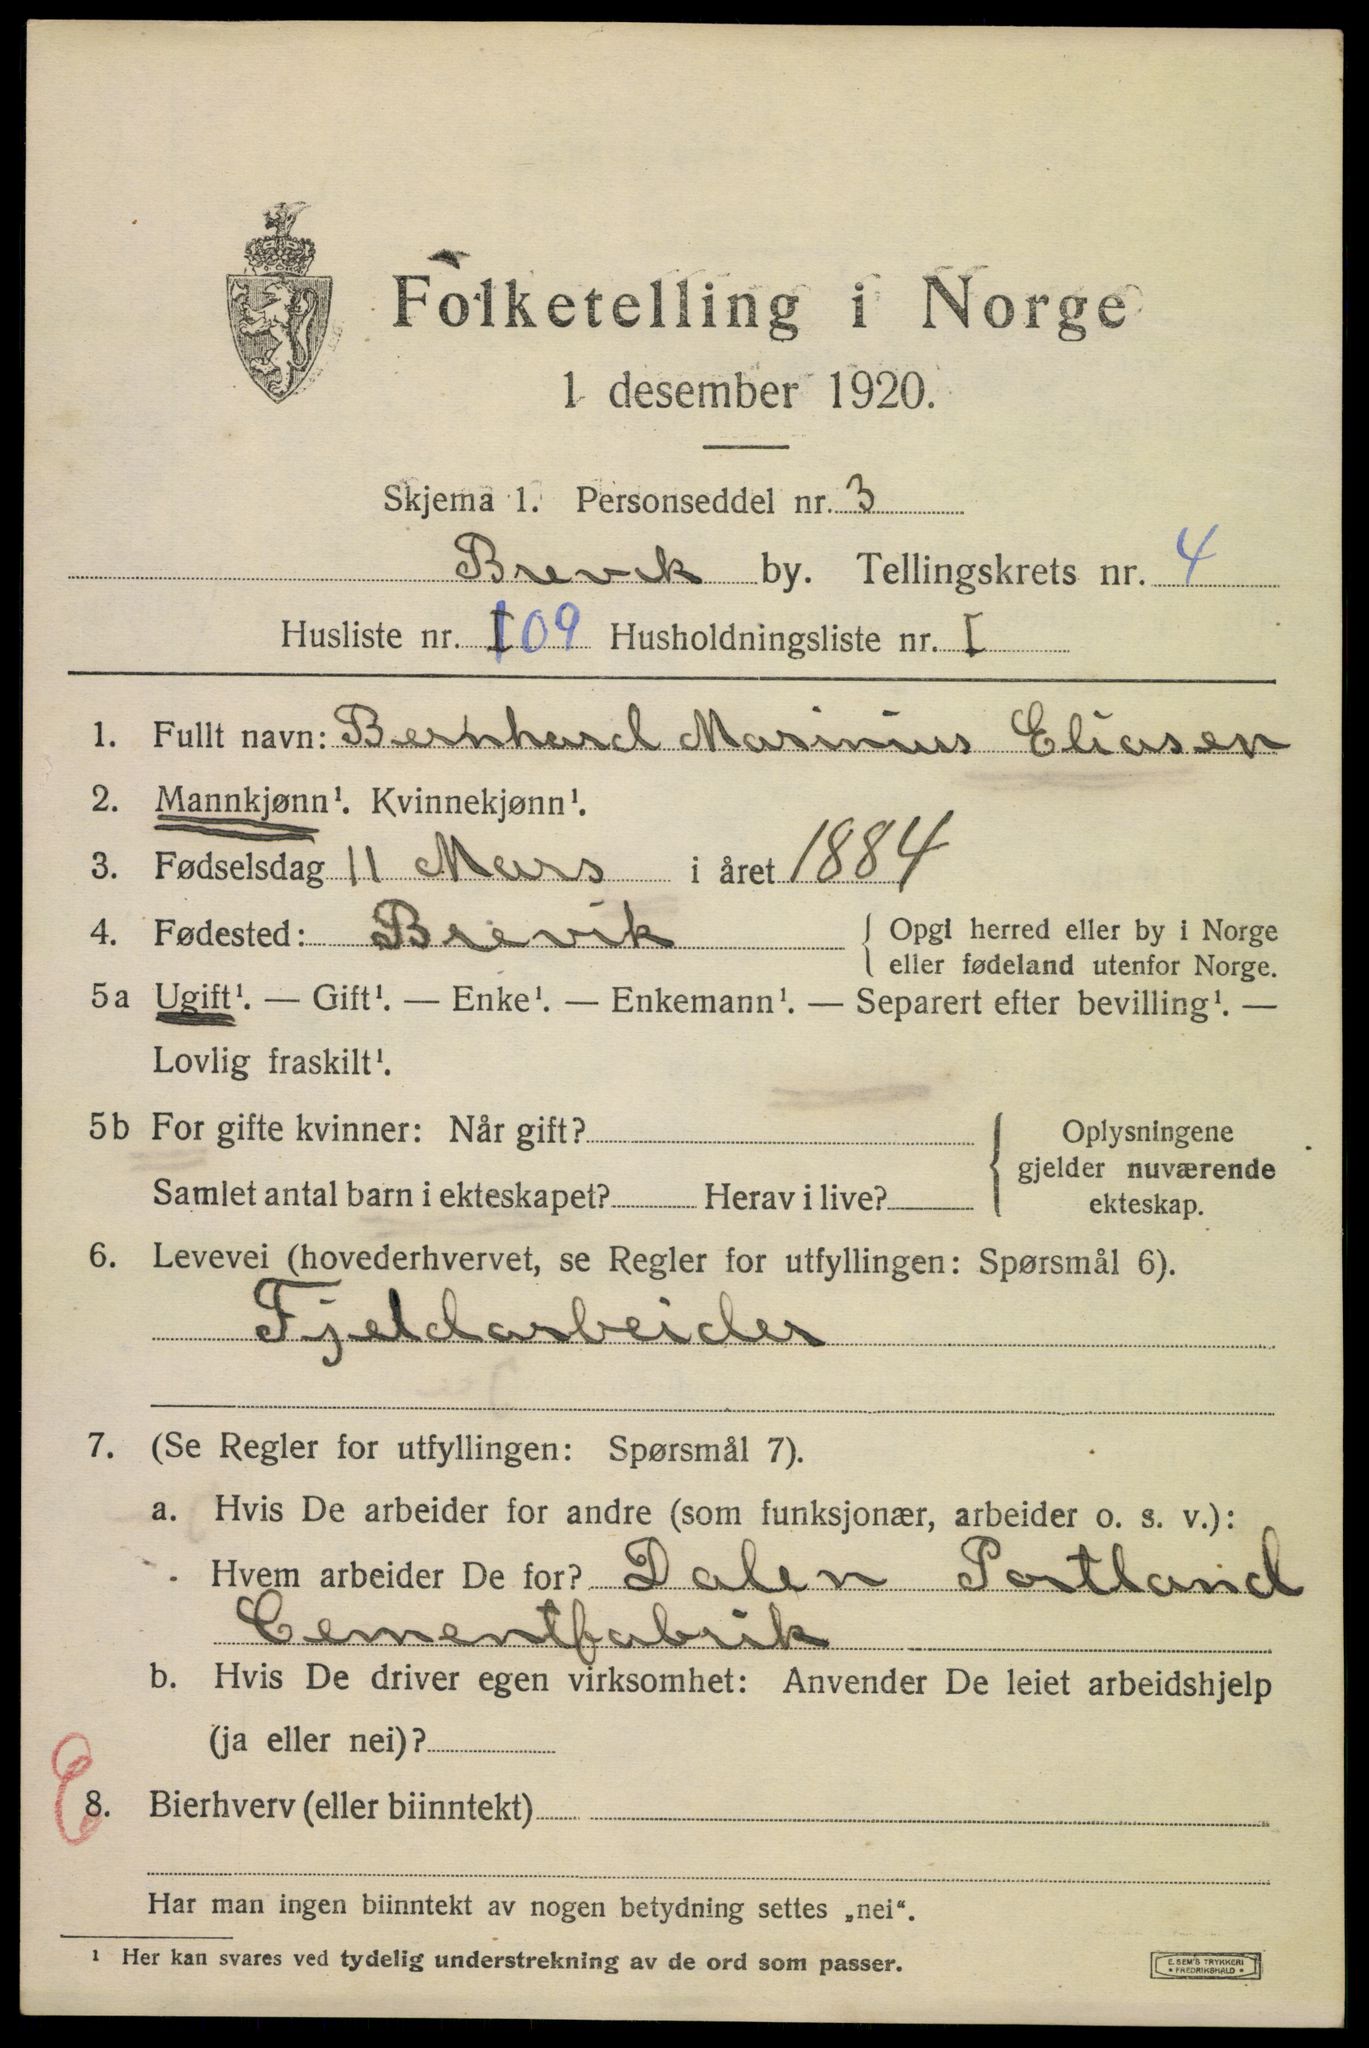 Folketelling i Norge
1 desember 1920.
Skjema 1. Personseddel nr. 3
Brevik by. Tellingskrets nr. 4
Husliste nr. 109 Husholdningsliste nr. I
1. Fullt navn: Bernhard Marinius Eliasen
2. Mannkjønn¹. Kvinnekjønn¹.
3. Fødselsdag 11 Mars i året 1884
4. Fødested: Brevik { Opgi herred eller by i Norge
eller fødeland utenfor Norge.
5a Ugift¹. — Gift¹. — Enke¹. — Enkemann¹. — Separert efter bevilling¹. —
Lovlig fraskilt¹.
5b For gifte kvinner: Når gift?
Samlet antal barn i ekteskapet? Herav i live?
{ Oplysningene
gjelder nuværende
ekteskap.
6. Levevei (hovederhvervet, se Regler for utfyllingen: Spørsmål 6).
Fjeldarbeider
7. (Se Regler for utfyllingen: Spørsmål 7).
a. Hvis De arbeider for andre (som funksjonær, arbeider o. s. v.):
Hvem arbeider De for? Dalen Portland
Cementfabrik
b. Hvis De driver egen virksomhet: Anvender De leiet arbeidshjelp
(ja eller nei)?
8. Bierhverv (eller biinntekt)
Har man ingen biinntekt av nogen betydning settes „nei“.
¹ Her kan svares ved tydelig understrekning av de ord som passer.
E. SEM'S TRYKKERI
* FREDRIKSHALD *